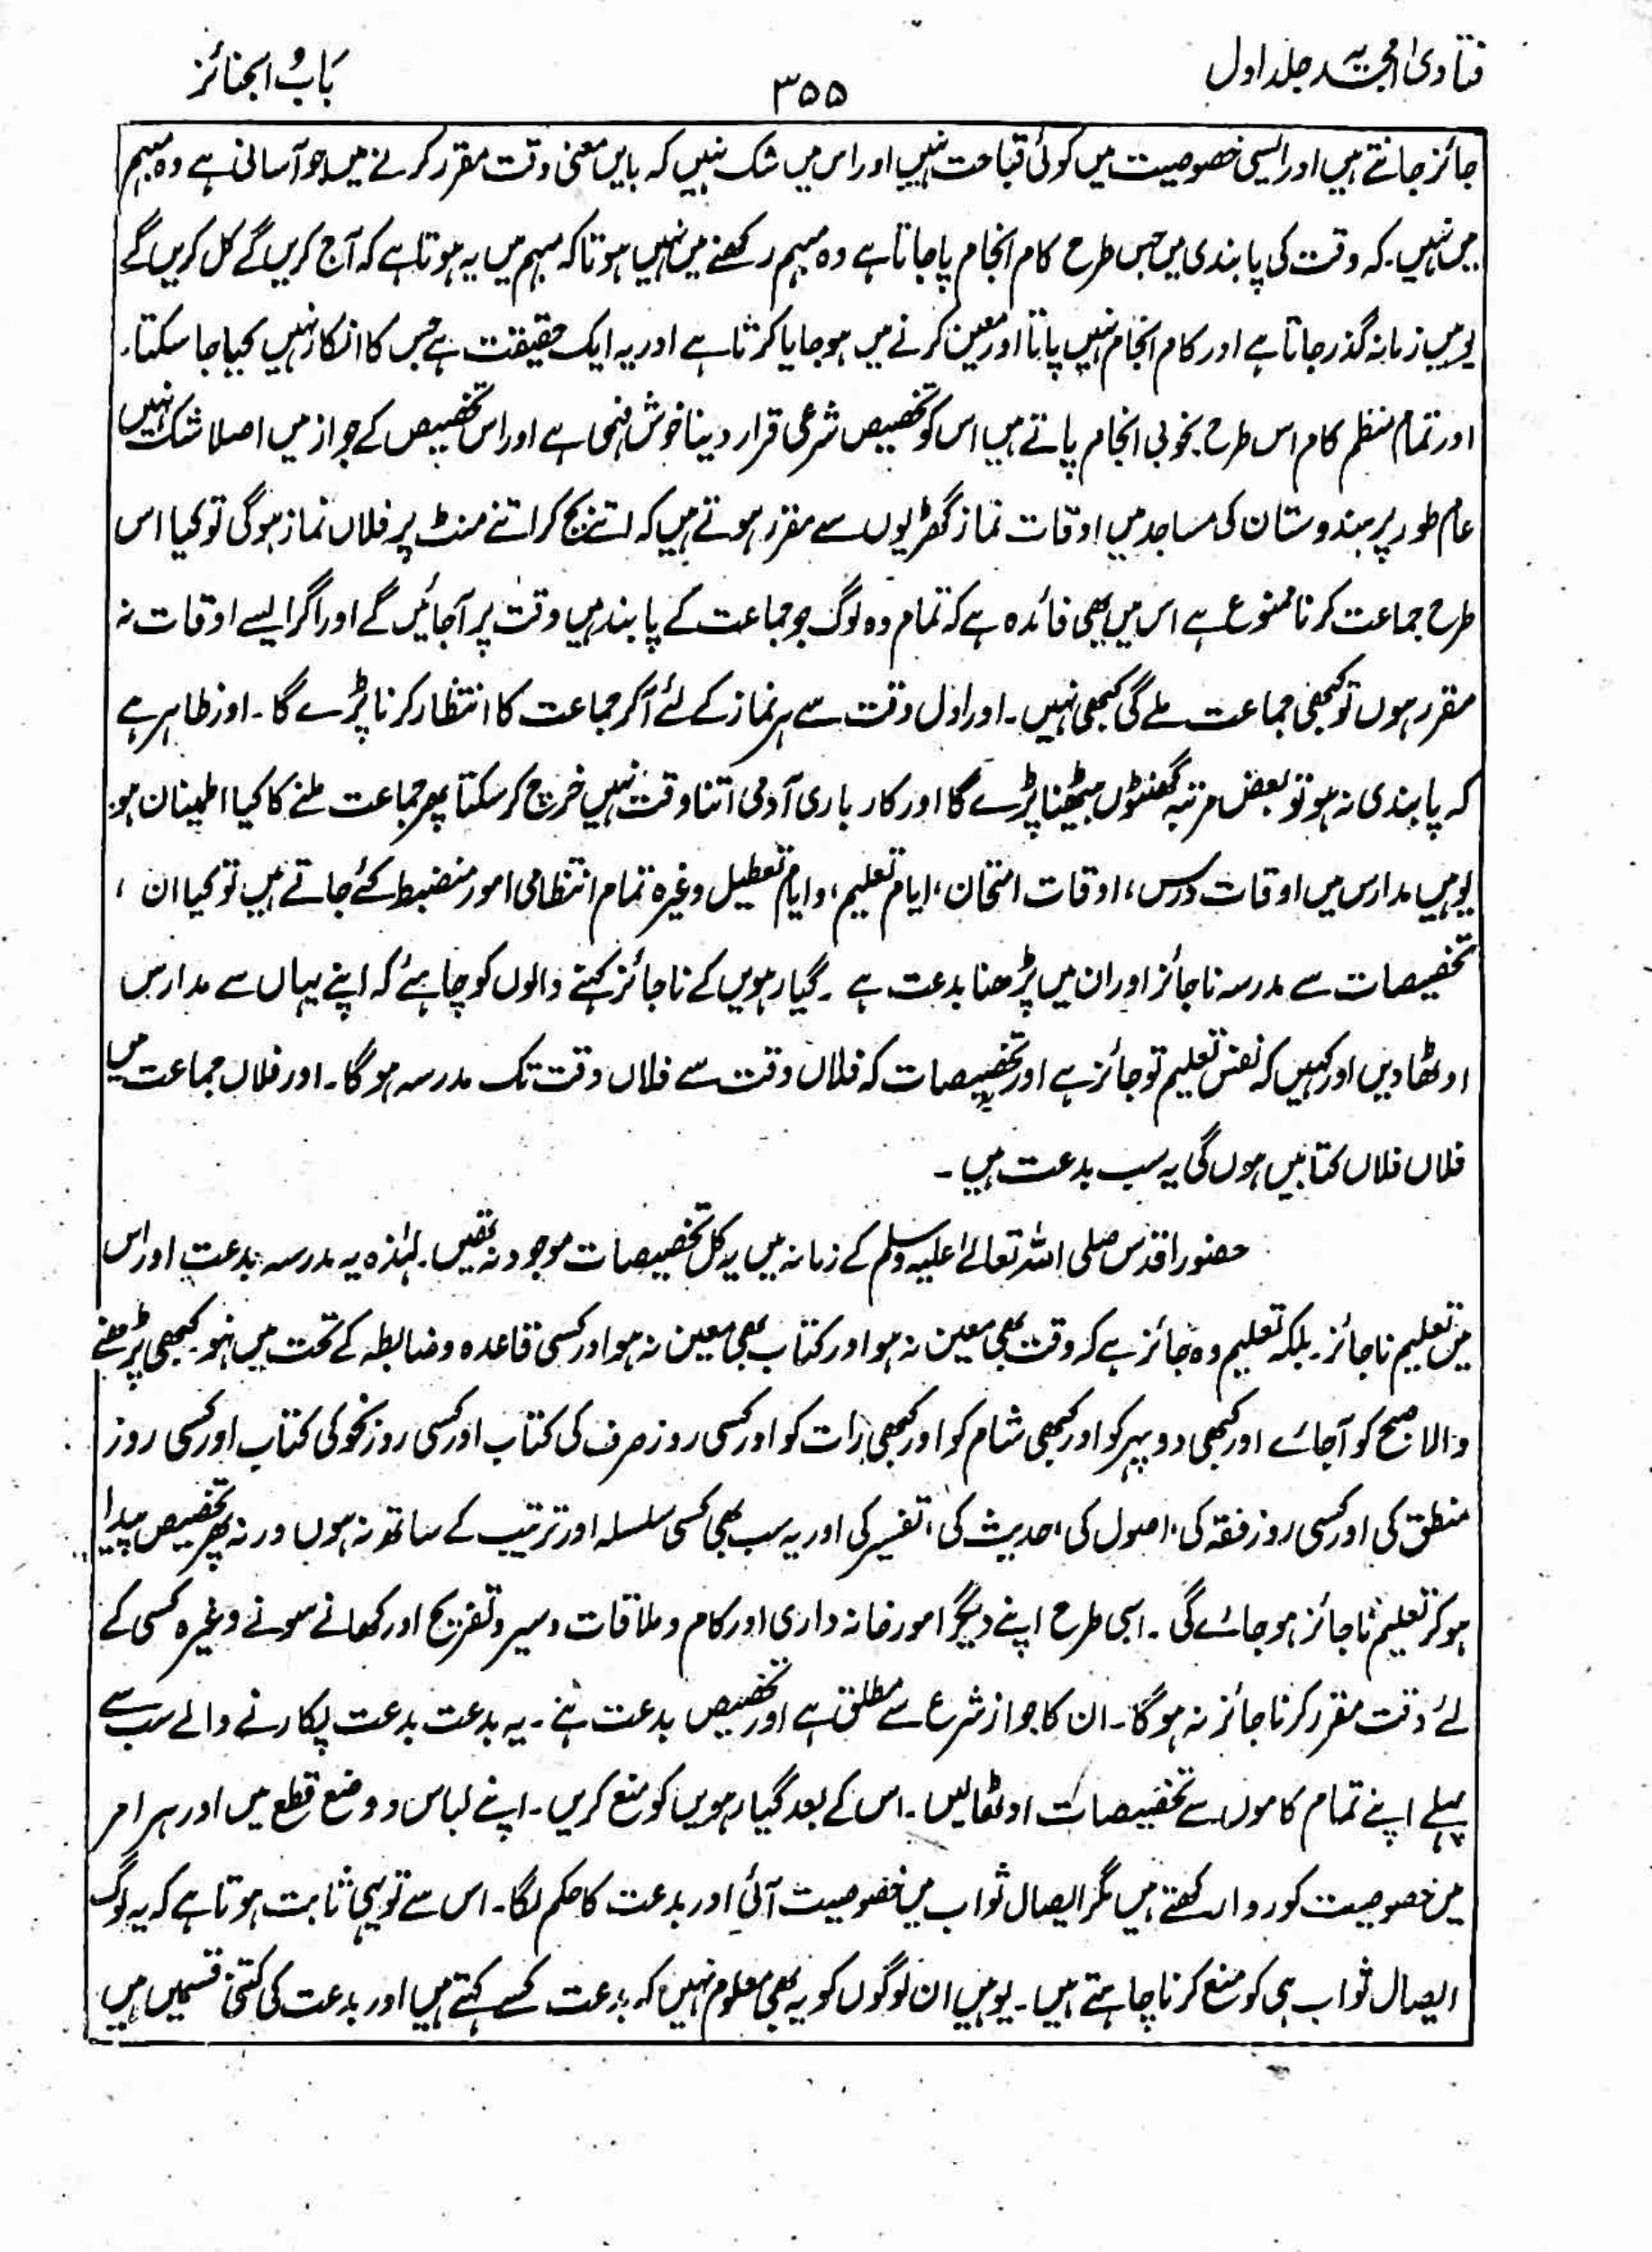 فتاویٰ امجدیہ جلد اول
۳۵۵
باب الجنائز
جائز جانتے ہیں اور ایسی خصوصیت میں کوئی قباحت نہیں اور اس میں شک نہیں کہ بایں معنی وقت مقرر کرنے میں جو آسانی ہے وہ مبہم
میں نہیں۔ کہ وقت کی پابندی میں جس طرح کام انجام پا جاتا ہے وہ مبہم رکھنے میں نہیں ہوتا کہ مبہم میں یہ ہوتا ہے کہ آج کریں گے کل کریں گے
یوہیں زمانہ گذر جاتا ہے اور کام انجام نہیں پاتا اور معین کرنے میں ہو جایا کرتا ہے اور یہ ایک حقیقت ہے جس کا انکار نہیں کیا جا سکتا۔
اور تمام منظم کام اس طرح بخوبی انجام پاتے ہیں اس کو تخصیص شرعی قرار دینا خوش فہمی ہے اور اس تخصیص کے جواز میں اصلا شک نہیں
عام طور پر ہندوستان کی مساجد میں اوقات نماز گھڑیوں سے مقرر ہوتے ہیں کہ اتنے بج کر اتنے منٹ پر فلاں نماز ہوگی تو کیا اس
طرح جماعت کرنا ممنوع ہے اس میں بھی فائدہ ہے کہ تمام وہ لوگ جو جماعت کے پابند ہیں وقت پر آجائیں گے اور اگر ایسے اوقات نہ
مقرر ہوں تو کبھی جماعت ملے گی کبھی نہیں۔ اور اول وقت سے ہر نماز کے لئے آکر جماعت کا انتظار کرنا پڑے گا۔ اور ظاہر ہے
کہ پابندی نہ ہو تو بعض مرتبہ گھنٹوں بیٹھنا پڑے گا اور کار باری آدمی اتنا وقت نہیں خرچ کر سکتا پھر جماعت ملنے کا کیا اطمینان ہو
یوہیں مدارس میں اوقات درس، اوقات امتحان، ایام تعلیم، وایام تعطیل وغیرہ تمام انتظامی امور منضبط کئے جاتے ہیں تو کیا ان ،
تخصیصات سے مدرسہ ناجائز اور ان میں پڑھنا بدعت ہے ۔ گیارہویں کے ناجائز کہنے والوں کو چاہئے کہ اپنے یہاں سے مدارس
اوٹھا دیں اور کہیں کہ نفس تعلیم تو جائز ہے اور تخصیصات کہ فلاں وقت سے فلاں وقت تک مدرسہ ہوگا۔ اور فلاں جماعت میں
فلاں فلاں کتابیں ہوں گی یہ سب بدعت ہیں ۔
حضور اقدس صلی اللہ تعالےٰ علیہ وسلم کے زمانہ میں یہ کل تخصیصات موجود نہ تھیں۔ لہٰذہ یہ مدرسہ بدعت اور اس
میں تعلیم ناجائز۔ بلکہ تعلیم وہ جائز ہے کہ وقت بھی معین نہ ہو اور کتاب بھی معین نہ ہو اور کسی قاعدہ وضابطہ کے تحت میں نہو۔ کبھی پڑھنے
والا صبح کو آجائے اور کبھی دوپہر کو اور کبھی شام کو اور کبھی رات کو اور کسی روز صرف کی کتاب اور کسی روز نحو کی کتاب اور کسی روز
منطق کی اور کسی روز فقہ کی، اصول کی، حدیث کی، تفسیر کی اور یہ سب بھی کسی سلسلہ اور ترتیب کے ساتھ نہ ہوں ورنہ پھر تخصیص پیدا
ہو کر تعلیم ناجائز ہو جائے گی ۔ اسی طرح اپنے دیگر امور خانہ داری اور کام و ملاقات وسیر وتفریح اور کھانے سونے وغیرہ کسی کے
لئے وقت مقرر کرنا جائز نہ ہوگا۔ ان کا جواز شرع سے مطلق ہے اور تخصیص بدعت ہے ۔ یہ بدعت بدعت پکارنے والے سب سے
پہلے اپنے تمام کاموں سے تخصیصات اوٹھالیں ۔ اس کے بعد گیارہویں کو منع کریں ۔ اپنے لباس و وضع قطع میں اور ہر امر
میں خصوصیت کو روا رکھتے ہیں مگر ایصال ثواب میں خصوصیت آئی اور بدعت کا حکم لگا۔ اس سے تو یہی ثابت ہوتا ہے کہ یہ لوگ
ایصال ثواب ہی کو منع کرنا چاہتے ہیں ۔ یوہیں ان لوگوں کو یہ بھی معلوم نہیں کہ بدعت کسے کہتے ہیں اور بدعت کی کتنی قسمیں ہیں